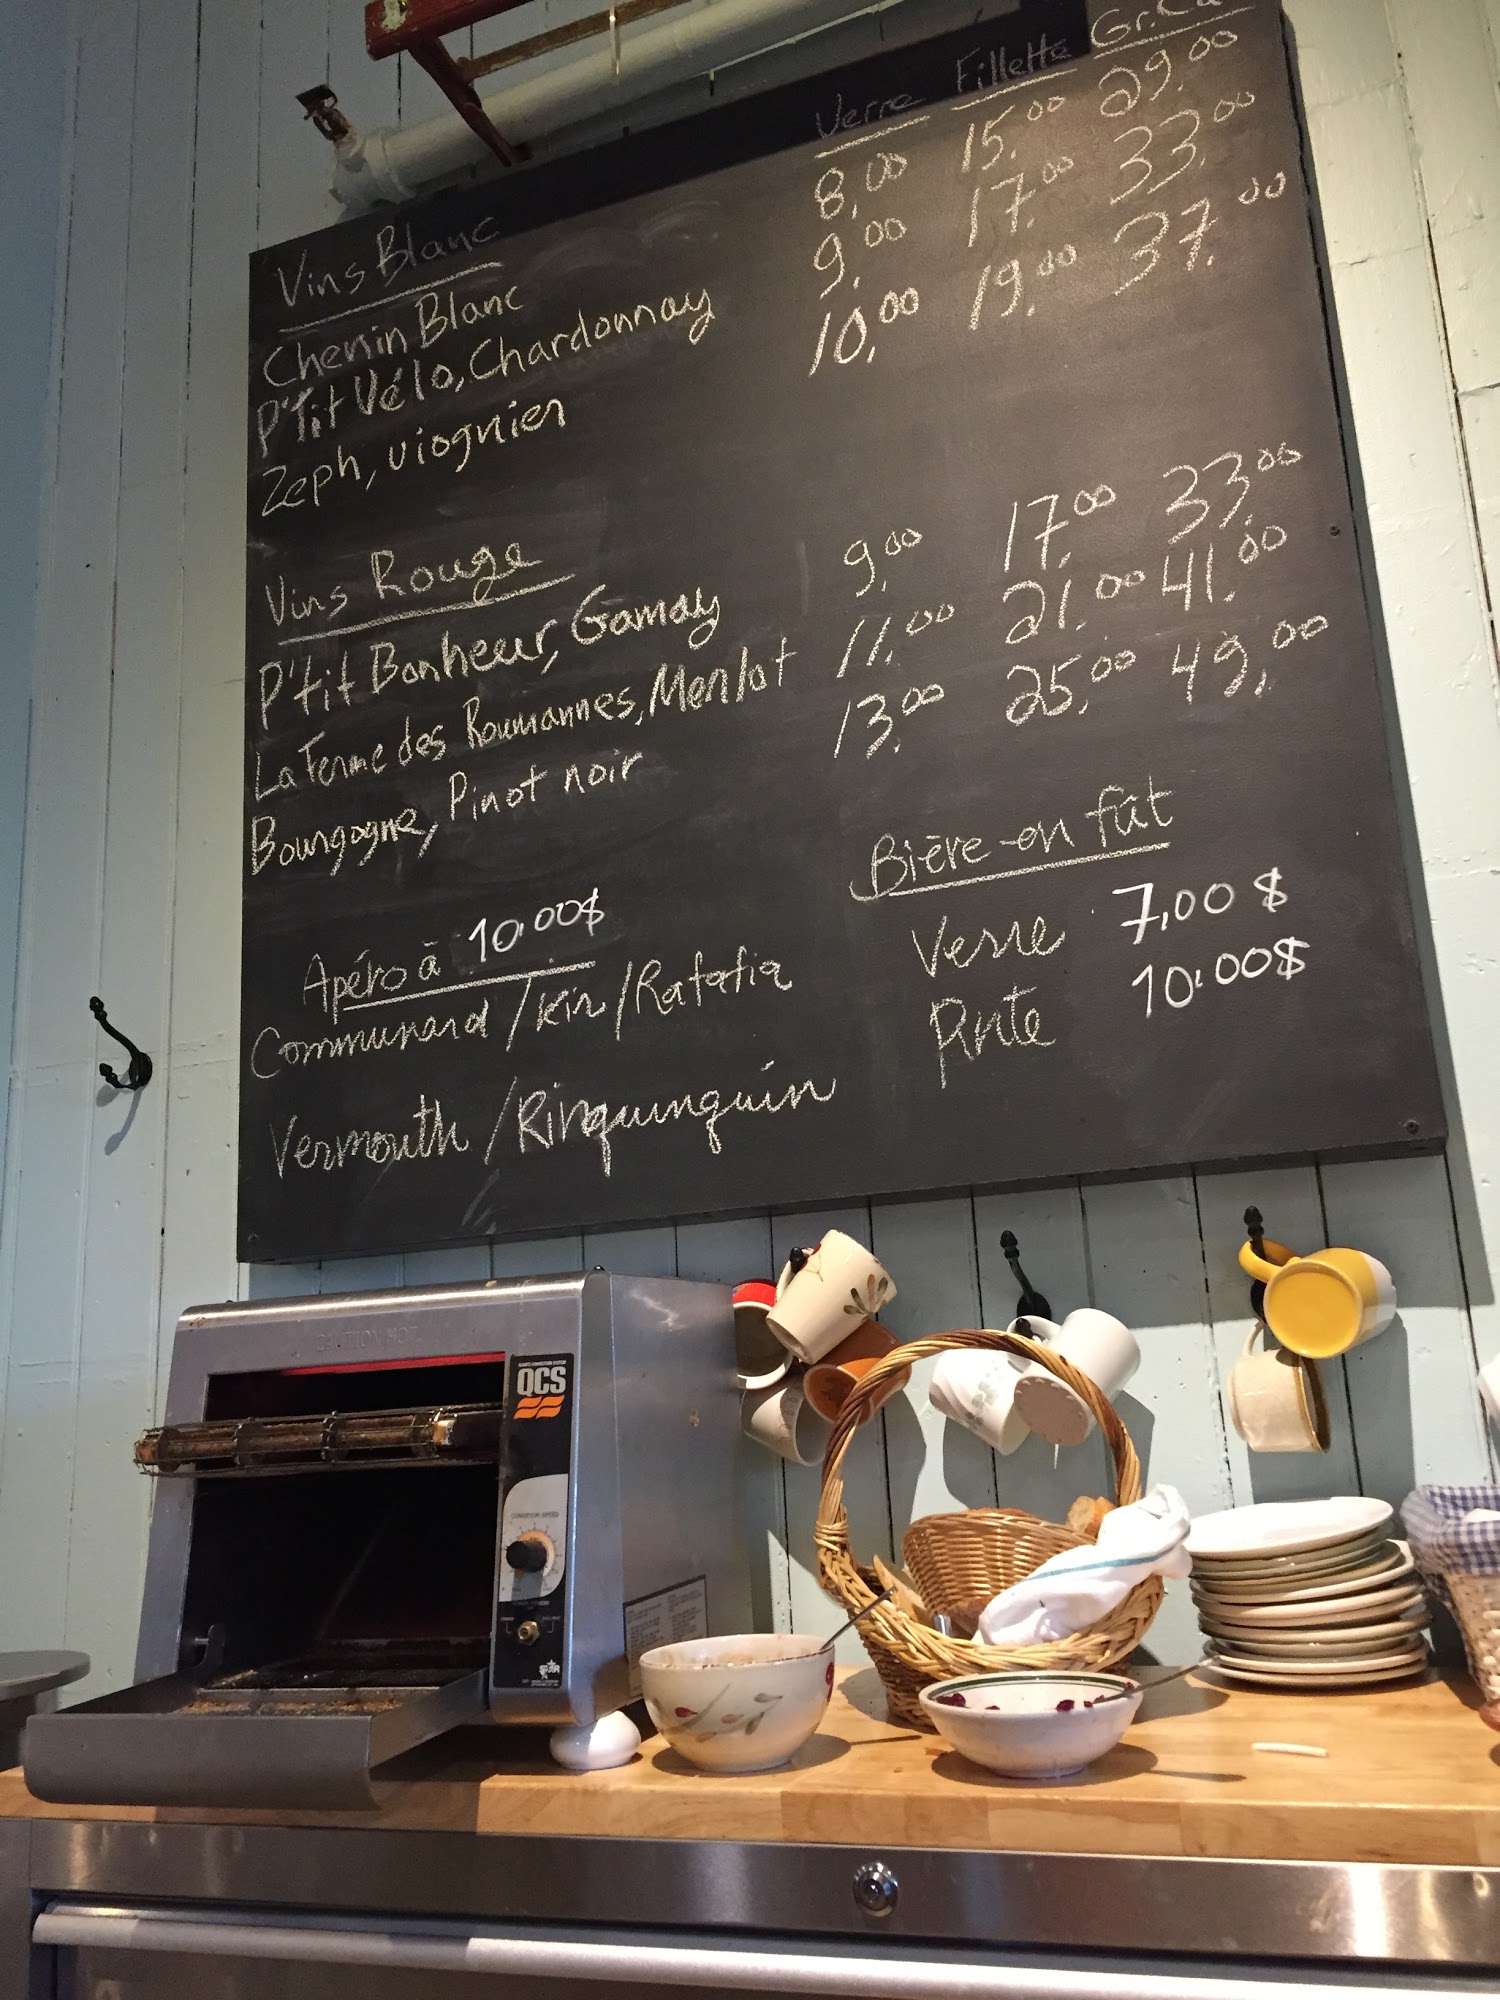 Verre Fillette Gr.Ca
Vins Blanc
Chenin Blanc 8,00 15.00 29.00
P'tit Vélo, Chardonnay 9.00 17.00 33.00
Zeph, viognier 10,00 19.00 37.00
Vins Rouge
P'tit Bonheur, Gamay 9.00 17.00 33.00
La Ferme des Roumannes, Merlot 11.00 21.00 41.00
Bourgogne, Pinot noir 13.00 25.00 49,00
Apéro à 10.00$
Communard / Kir / Ratafia
Vermouth / Rinquinquin
Bière en fût
Verre 7,00 $
Pinte 10.00$
CAUTION HOT
QCS
CONVEYOR SPEED
STAR